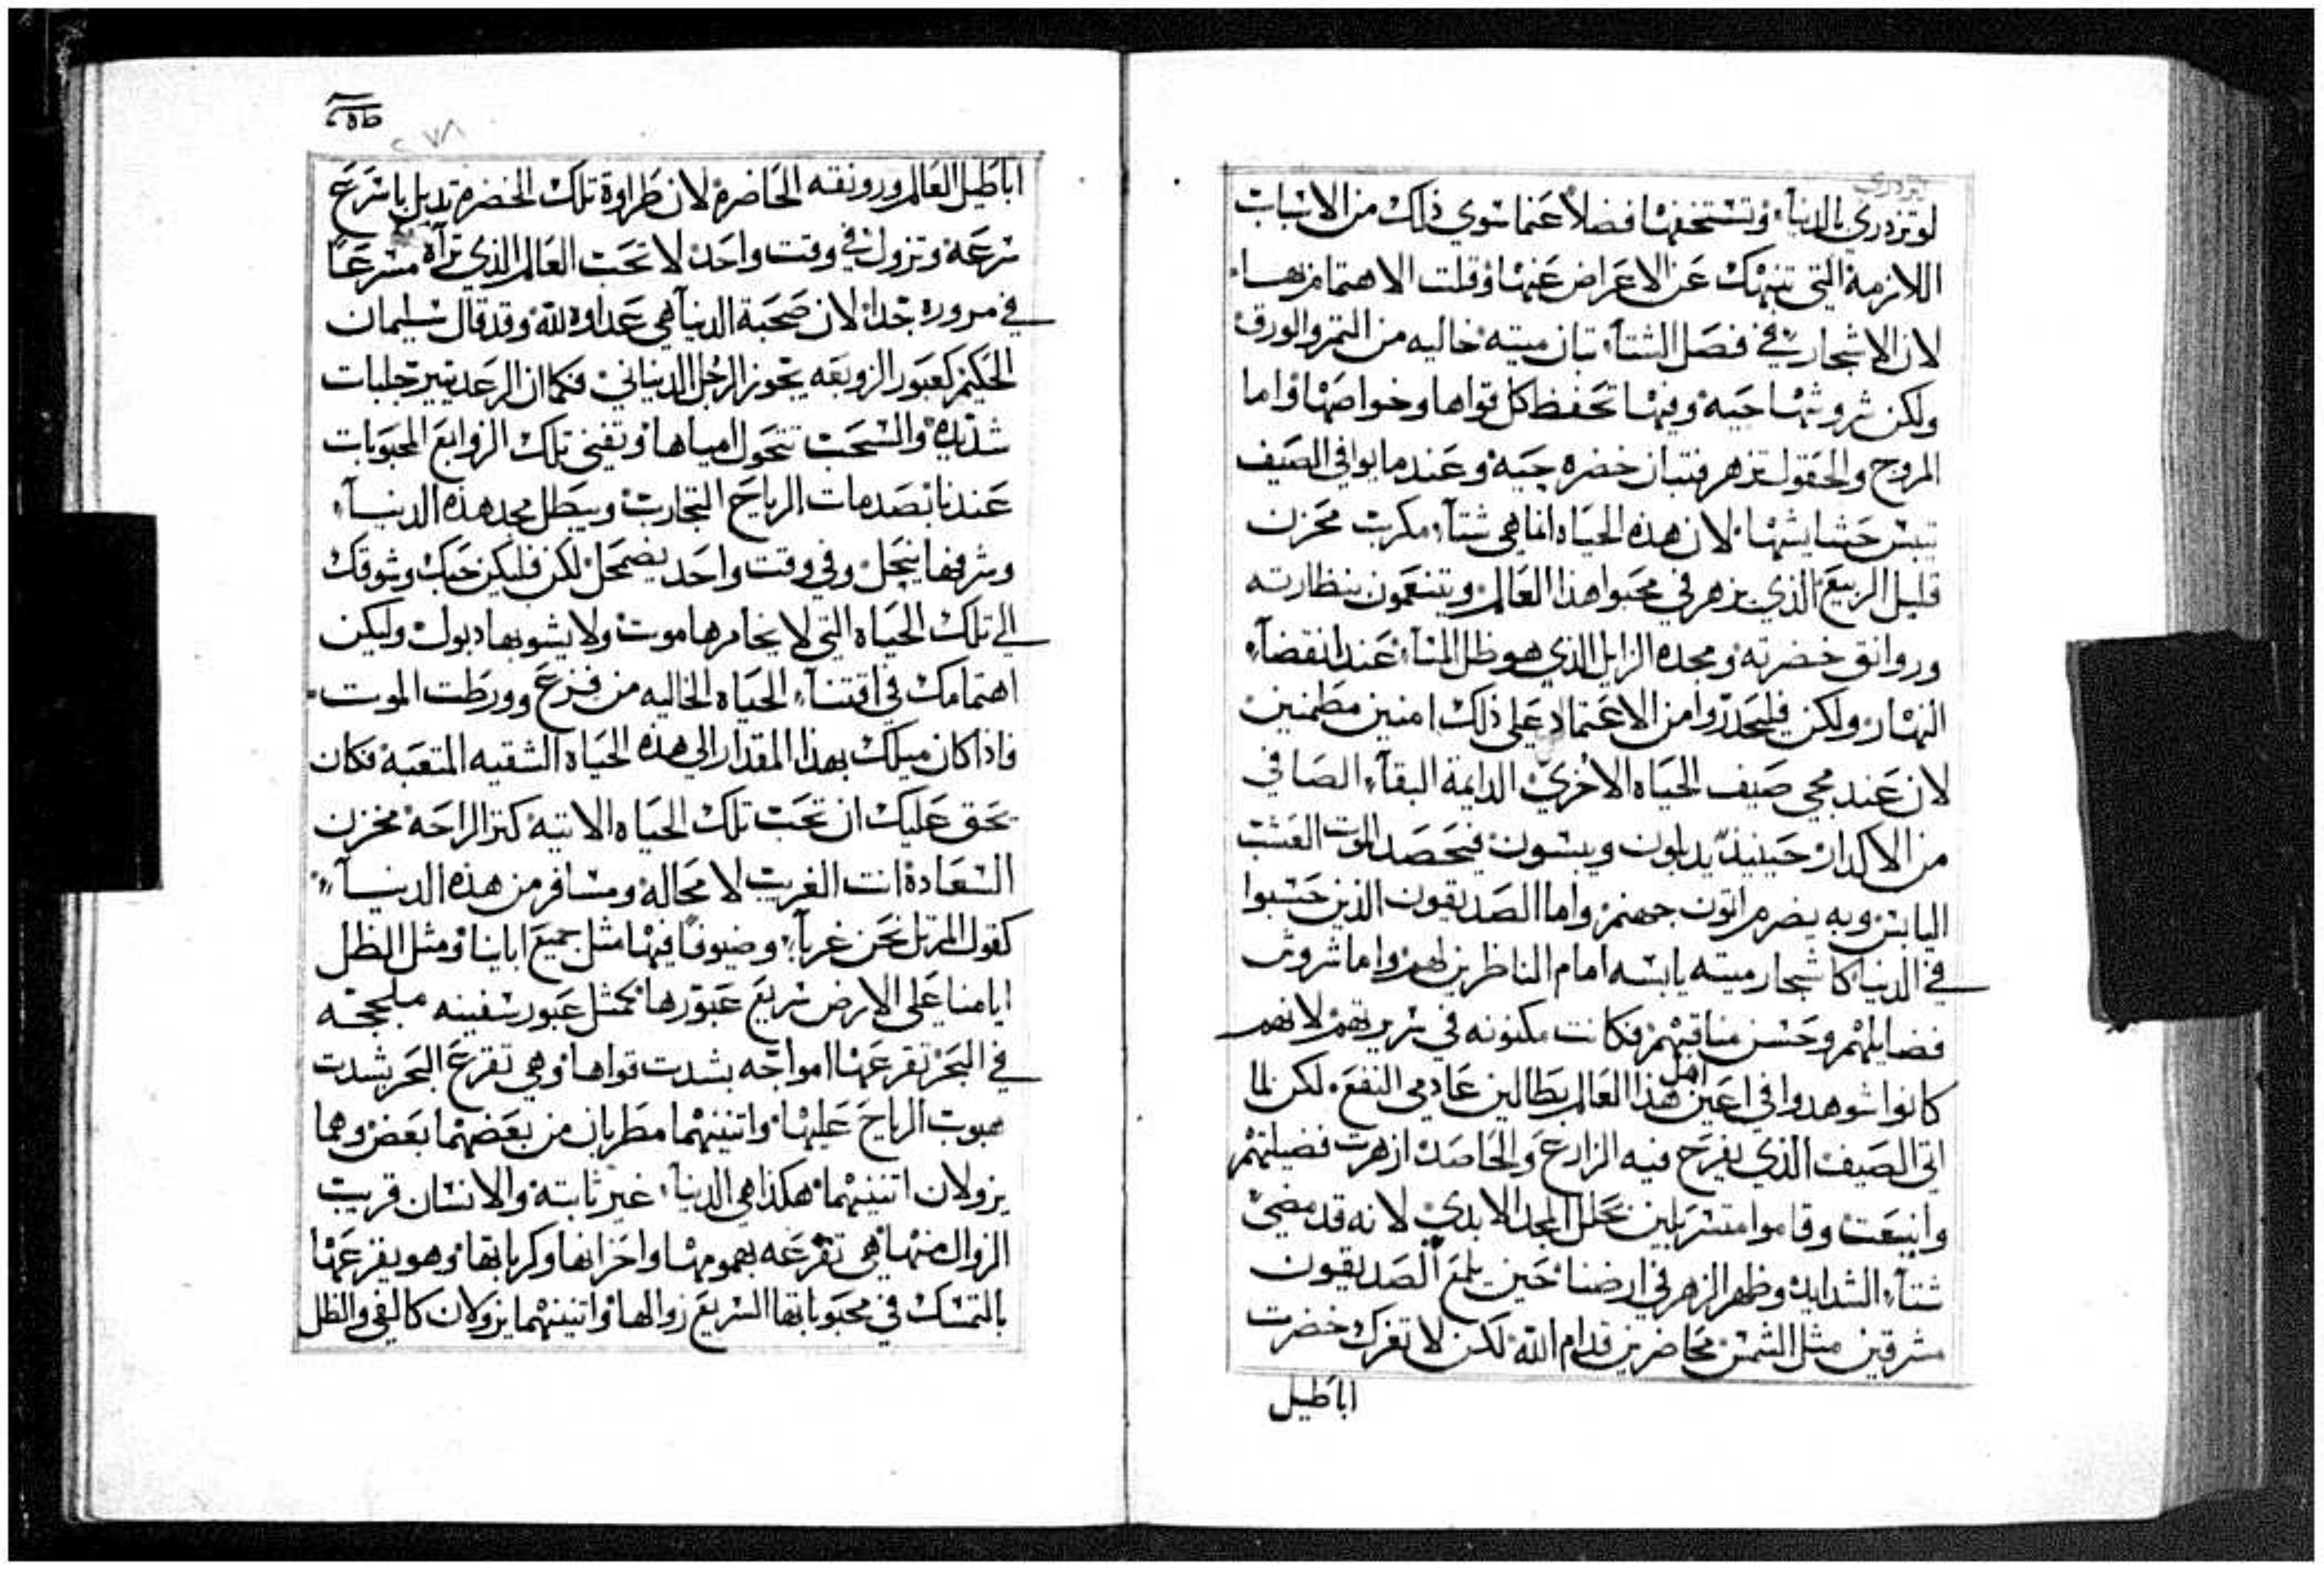 لو تزدري بالدنيا، وتستخفها فضلاً عما سوي ذلك من الاسباب
اللازمة التي تنهيك عن الاعراض عنها وقلت الاهتمام بها،
لان الاشجار في فصل الشتاء، تبان ميته خاليه من الثمر والورق
ولكن شروشها حيه وفيها تحفظ كل قواها وخواصها واما
المروج والحقول تزهر فتبان خضره حيه وعند ما يوافي الصيف
تيبس حشايشها لان هذه الحياه انما هي شتاء مكرب محزن
قليل الربيع الذي يزهر في محبوا هذا العالم ويتنعمون بنظارته
وروانق خضرته ومجده الزايل الذي هو ظل المساء عند انقضاء
النهار ولكن فليحدروا من الاعتماد علي ذلك امنين مطمنين
لان عند مجي صيف الحياه الاخري الدايمة البقاء الصافي
من الاكدار حينيذ يدبلون ويبسون فيحصد الموت العشب
اليابس وبه يضرم اتون جهنم واما الصديقون الذين حسبوا
في الدنيا كاشجار ميته يابسه امام الناظرين لهم واما شروش
فضايلهم وحسن مناقبهم فكانت مكنونه في سريرتهم لانهم
كانوا شوهدوا في اعين اهل هذا العالم بطالين عادمي النفع لكن لما
اتي الصيف الذي يفرح فيه الزارع والحاصد ازهرت فضيلتهم
وانيعت وقاموا متسربلين بحلل المجد الابدي لانه قد مضي
شتاء الشدايد وظهر الزهر في ارضنا حين يلمع الصديقون
مشرقين مثل الشمس محاضرين قدام الله لكن لا تغرك خضرت
اباطيل
اباطيل العالم ورونقه الحاضرة لان طراوة تلك الخضرة تدبل باسرع
سرعة وتزول في وقت واحد لا تحب العالم الذي تراه مسرعاً
في مروره جدا لان صحبة الدنيا هي عداوه لله وقد قال سليمان
الحكيم كعبور الزوبعه يجوز الرجل الدنياني فكما ان الرعد يتير جلبات
شديده والسحب تتحول امياها وتفني تلك الزوابع المحبوبات
عندنا بصدمات الرياح التجارب ويبطل مجد هذه الدنيا
وشرفها ينحل وفي وقت واحد يضمحل لكن فليكن حبك وشوقك
الي تلك الحياه التي لا يخامرها موت ولا يشوبها دبول وليكن
اهتمامك في اقتناء الحياه الخاليه من فزع وورطت الموت
فاذا كان ميلك بهذا المقدار الي هذه الحياه الشقيه المتعبه فكان
يحق عليك ان تحب تلك الحياه الاتيه كنز الراحة مخزن
السعادة انت الغريب لا محاله ومسافر من هذه الدنيا
كقول المرتل نحن غربا وضيوفاً فيها مثل جميع اباينا ومثل الظل
ايامنا علي الارض سريع عبورها كمثل عبور سفينه ملججه
في البحر تقرعها امواجه بشدت قواها وهي تقرع البحر بشدت
هبوب الرياح عليها واتنينهما مطربان من بعضهما بعض وهما
يزولان اتنينهما هكذا هي الدنيا غير ثابتة والانسان قريب
الزوال منها هي تقرعه بهمومها واحزانها وكرباتها وهو يقرعها
بالتمسك في محبوباتها السريع زوالها واتنينهما يزولان كالفي والظل